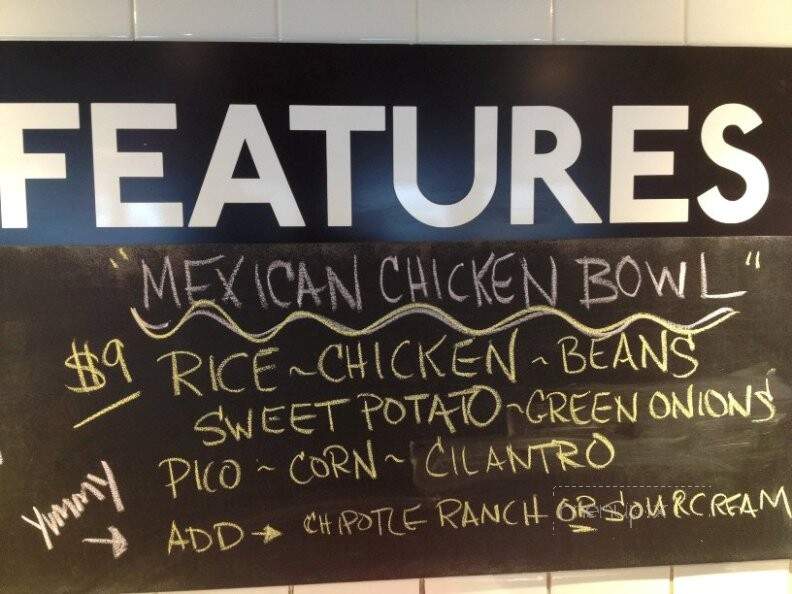 FEATURES
"MEXICAN CHICKEN BOWL"
$9 RICE ~ CHICKEN ~ BEANS
SWEET POTATO ~ GREEN ONIONS
PICO ~ CORN ~ CILANTRO
YUMMY → ADD → CHIPOTLE RANCH OR SOURCREAM